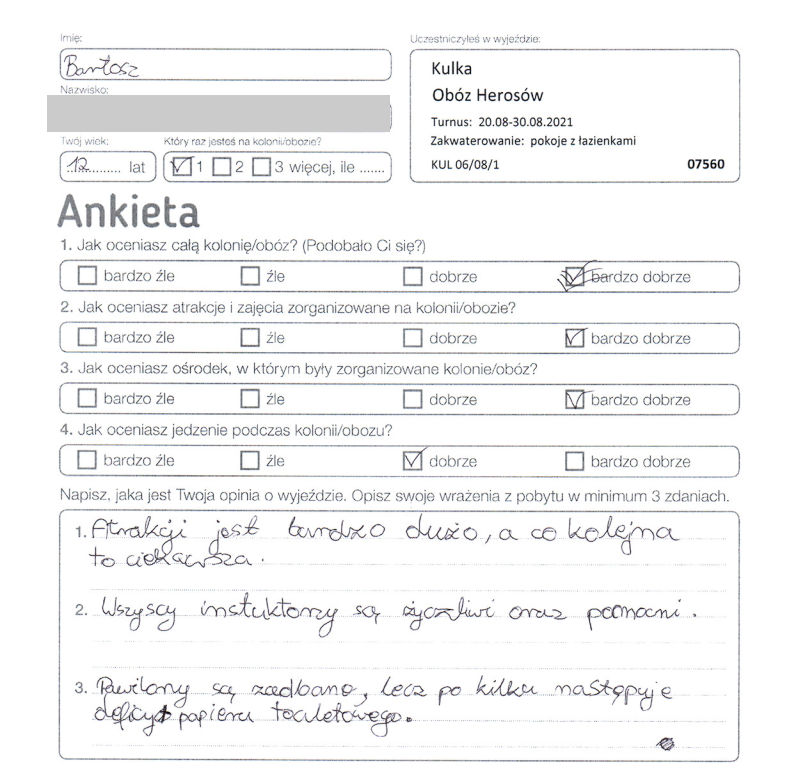 Imię:
Bartosz
Nazwisko:
Twój wiek:
12 lat
Który raz jesteś na kolonii/obozie?
1 2 3 więcej, ile .......
Uczestniczyłeś w wyjeździe:
Kulka
Obóz Herosów
Turnus: 20.08-30.08.2021
Zakwaterowanie: pokoje z łazienkami
KUL 06/08/1 07560
Ankieta
1. Jak oceniasz całą kolonię/obóz? (Podobało Ci się?)
bardzo źle źle dobrze bardzo dobrze
2. Jak oceniasz atrakcje i zajęcia zorganizowane na kolonii/obozie?
bardzo źle źle dobrze bardzo dobrze
3. Jak oceniasz ośrodek, w którym były zorganizowane kolonie/obóz?
bardzo źle źle dobrze bardzo dobrze
4. Jak oceniasz jedzenie podczas kolonii/obozu?
bardzo źle źle dobrze bardzo dobrze
Napisz, jaka jest Twoja opinia o wyjeździe. Opisz swoje wrażenia z pobytu w minimum 3 zdaniach.
1. Atrakcji jest bardzo dużo, a co kolejna
to ciekawsza.
2. Wszyscy instuktorzy są życzliwi oraz pomocni.
3. Pawilony są zadbane, lecz po kilku następuje
deficyt papieru toaletowego.